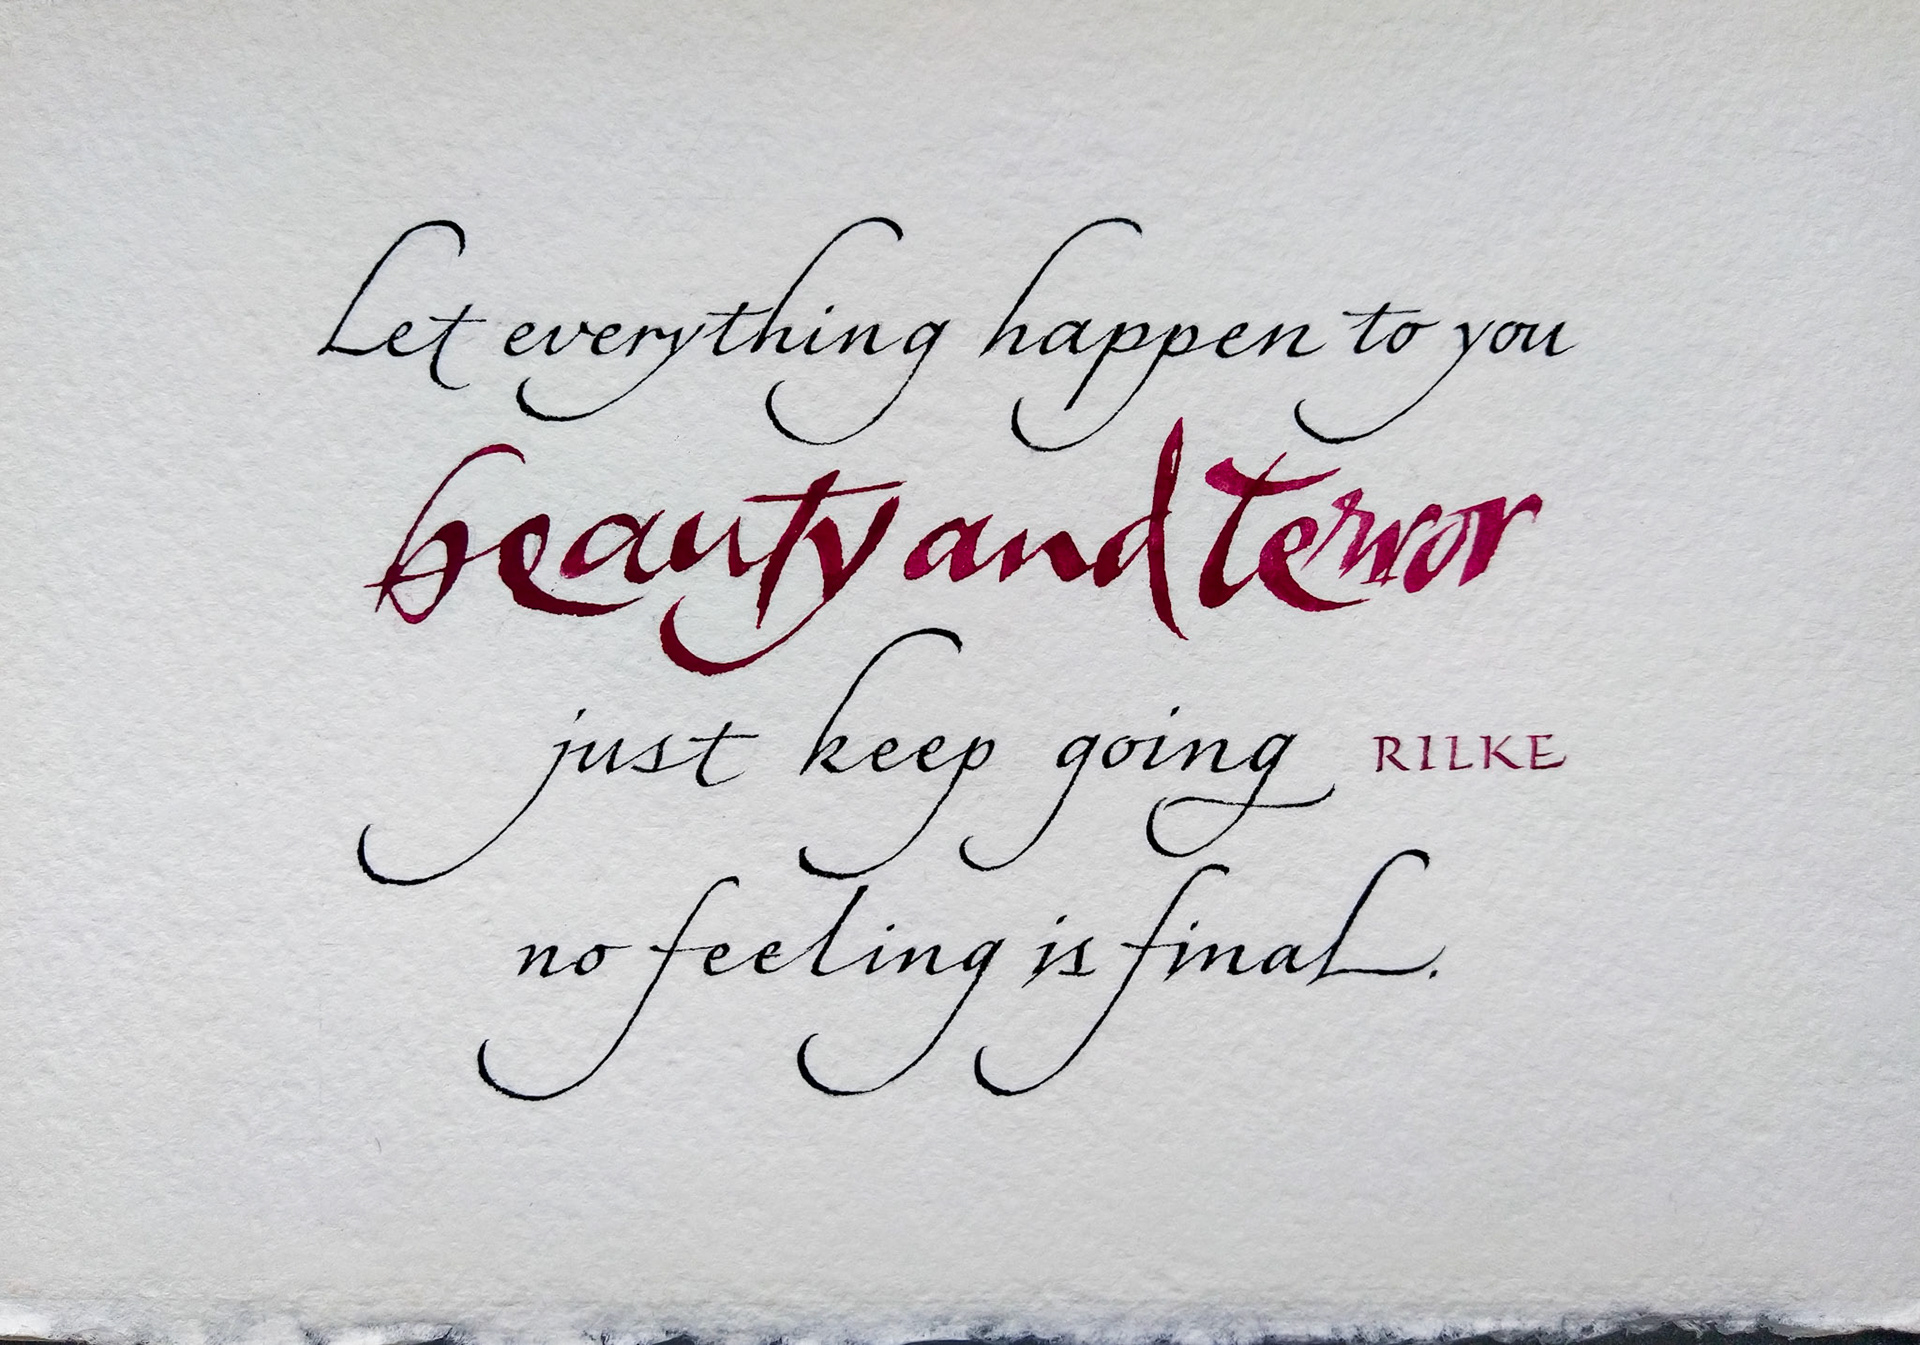 Let everything happen to you
beauty and terror
just keep going RILKE
no feeling is final.